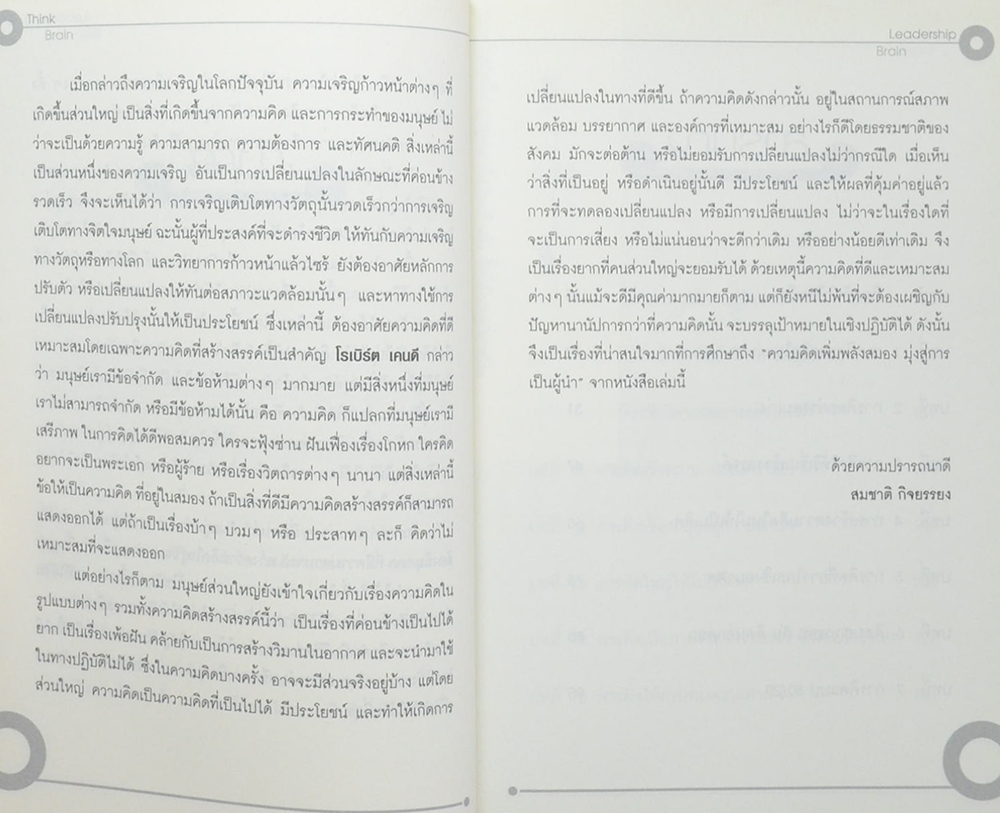 Think
Brain
เมื่อกล่าวถึงความเจริญในโลกปัจจุบัน ความเจริญก้าวหน้าต่างๆ ที่
เกิดขึ้นส่วนใหญ่ เป็นสิ่งที่เกิดขึ้นจากความคิด และการกระทำของมนุษย์ ไม่
ว่าจะเป็นด้วยความรู้ ความสามารถ ความต้องการ และทัศนคติ สิ่งเหล่านี้
เป็นส่วนหนึ่งของความเจริญ อันเป็นการเปลี่ยนแปลงในลักษณะที่ค่อนข้าง
รวดเร็ว จึงจะเห็นได้ว่า การเจริญเติบโตทางวัตถุนั้นรวดเร็วกว่าการเจริญ
เติบโตทางจิตใจมนุษย์ ฉะนั้นผู้ที่ประสงค์ที่จะดำรงชีวิต ให้ทันกับความเจริญ
ทางวัตถุหรือทางโลก และวิทยาการก้าวหน้าแล้วไซร้ ยังต้องอาศัยหลักการ
ปรับตัว หรือเปลี่ยนแปลงให้ทันต่อสภาวะแวดล้อมนั้นๆ และหาทางใช้การ
เปลี่ยนแปลงปรับปรุงนั้นให้เป็นประโยชน์ ซึ่งเหล่านี้ ต้องอาศัยความคิดที่ดี
เหมาะสมโดยเฉพาะความคิดที่สร้างสรรค์เป็นสำคัญ โรเบิร์ต เคนดี กล่าว
ว่า มนุษย์เรามีข้อจำกัด และข้อห้ามต่างๆ มากมาย แต่มีสิ่งหนึ่งที่มนุษย์
เราไม่สามารถจำกัด หรือมีข้อห้ามได้นั้น คือ ความคิด ก็แปลกที่มนุษย์เรามี
เสรีภาพ ในการคิดได้ดีพอสมควร ใครจะฟุ้งซ่าน ฝันเฟื่องเรื่องโกหก ใครคิด
อยากจะเป็นพระเอก หรือผู้ร้าย หรือเรื่องวิตถารต่างๆ นานา แต่สิ่งเหล่านี้
ข้อให้เป็นความคิด ที่อยู่ในสมอง ถ้าเป็นสิ่งที่ดีมีความคิดสร้างสรรค์ก็สามารถ
แสดงออกได้ แต่ถ้าเป็นเรื่องบ้าๆ บวมๆ หรือ ประสาทๆ ละก็ คิดว่าไม่
เหมาะสมที่จะแสดงออก
แต่อย่างไรก็ตาม มนุษย์ส่วนใหญ่ยังเข้าใจเกี่ยวกับเรื่องความคิดใน
รูปแบบต่างๆ รวมทั้งความคิดสร้างสรรค์นี้ว่า เป็นเรื่องที่ค่อนข้างเป็นไปได้
ยาก เป็นเรื่องเพ้อฝัน คล้ายกับเป็นการสร้างวิมานในอากาศ และจะนำมาใช้
ในทางปฏิบัติไม่ได้ ซึ่งในความคิดบางครั้ง อาจจะมีส่วนจริงอยู่บ้าง แต่โดย
ส่วนใหญ่ ความคิดเป็นความคิดที่เป็นไปได้ มีประโยชน์ และทำให้เกิดการ
Leadership
Brain
เปลี่ยนแปลงในทางที่ดีขึ้น ถ้าความคิดดังกล่าวนั้น อยู่ในสถานการณ์สภาพ
แวดล้อม บรรยากาศ และองค์การที่เหมาะสม อย่างไรก็ดีโดยธรรมชาติของ
สังคม มักจะต่อต้าน หรือไม่ยอมรับการเปลี่ยนแปลงไม่ว่ากรณีใด เมื่อเห็น
ว่าสิ่งที่เป็นอยู่ หรือดำเนินอยู่นั้นดี มีประโยชน์ และให้ผลที่คุ้มค่าอยู่แล้ว
การที่จะทดลองเปลี่ยนแปลง หรือมีการเปลี่ยนแปลง ไม่ว่าจะในเรื่องใดที่
จะเป็นการเสี่ยง หรือไม่แน่นอนว่าจะดีกว่าเดิม หรืออย่างน้อยดีเท่าเดิม จึง
เป็นเรื่องยากที่คนส่วนใหญ่จะยอมรับได้ ด้วยเหตุนี้ความคิดที่ดีและเหมาะสม
ต่างๆ นั้นแม้จะดีมีคุณค่ามากมายก็ตาม แต่ก็ยังหนีไม่พ้นที่จะต้องเผชิญกับ
ปัญหานานัปการกว่าที่ความคิดนั้น จะบรรลุเป้าหมายในเชิงปฏิบัติได้ ดังนั้น
จึงเป็นเรื่องที่น่าสนใจมากที่การศึกษาถึง "ความคิดเพิ่มพลังสมอง มุ่งสู่การ
เป็นผู้นำ" จากหนังสือเล่มนี้
ด้วยความปรารถนาดี
สมชาติ กิจยรรยง